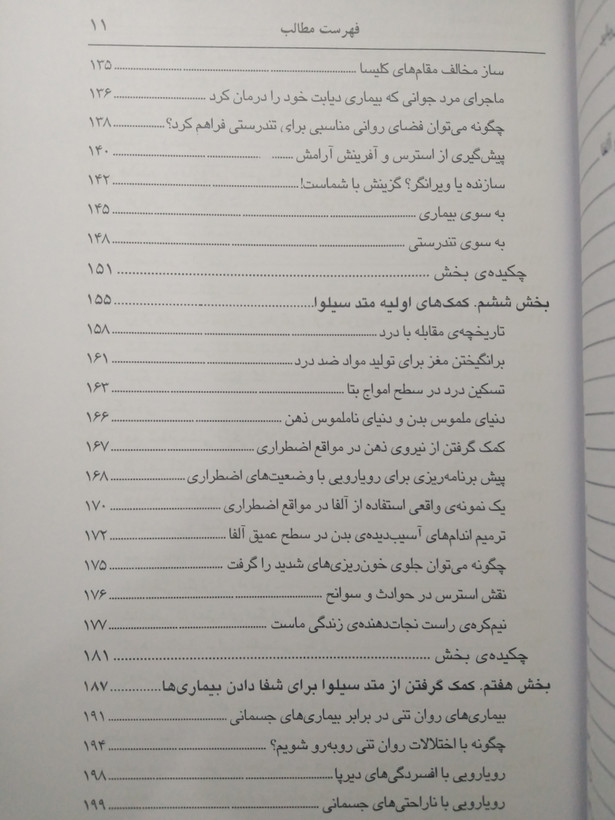 فهرست مطالب ۱۱
ساز مخالف مقام‌های کلیسا ۱۳۵
ماجرای مرد جوانی که بیماری دیابت خود را درمان کرد ۱۳۶
چگونه می‌توان فضای روانی مناسبی برای تندرستی فراهم کرد؟ ۱۳۸
پیش‌گیری از استرس و آفرینش آرامش ۱۴۰
سازنده یا ویرانگر؟ گزینش با شماست! ۱۴۲
به سوی بیماری ۱۴۵
به سوی تندرستی ۱۴۸
چکیده‌ی بخش ۱۵۱
بخش ششم. کمک‌های اولیه متد سیلوا ۱۵۵
تاریخچه‌ی مقابله با درد ۱۵۸
برانگیختن مغز برای تولید مواد ضد درد ۱۶۱
تسکین درد در سطح امواج بتا ۱۶۳
دنیای ملموس بدن و دنیای ناملموس ذهن ۱۶۶
کمک گرفتن از نیروی ذهن در مواقع اضطراری ۱۶۷
پیش برنامه‌ریزی برای رویارویی با وضعیت‌های اضطراری ۱۶۸
یک نمونه‌ی واقعی استفاده از آلفا در مواقع اضطراری ۱۷۰
ترمیم اندام‌های آسیب‌دیده‌ی بدن در سطح عمیق آلفا ۱۷۲
چگونه می‌توان جلوی خون‌ریزی‌های شدید را گرفت ۱۷۵
نقش استرس در حوادث و سوانح ۱۷۶
نیم‌کره‌ی راست نجات‌دهنده‌ی زندگی ماست ۱۷۷
چکیده‌ی بخش ۱۸۱
بخش هفتم. کمک گرفتن از متد سیلوا برای شفا دادن بیماری‌ها ۱۸۷
بیماری‌های روان تنی در برابر بیماری‌های جسمانی ۱۹۱
چگونه با اختلالات روان تنی روبه‌رو شویم؟ ۱۹۴
رویارویی با افسردگی‌های دیرپا ۱۹۸
رویارویی با ناراحتی‌های جسمانی ۱۹۹